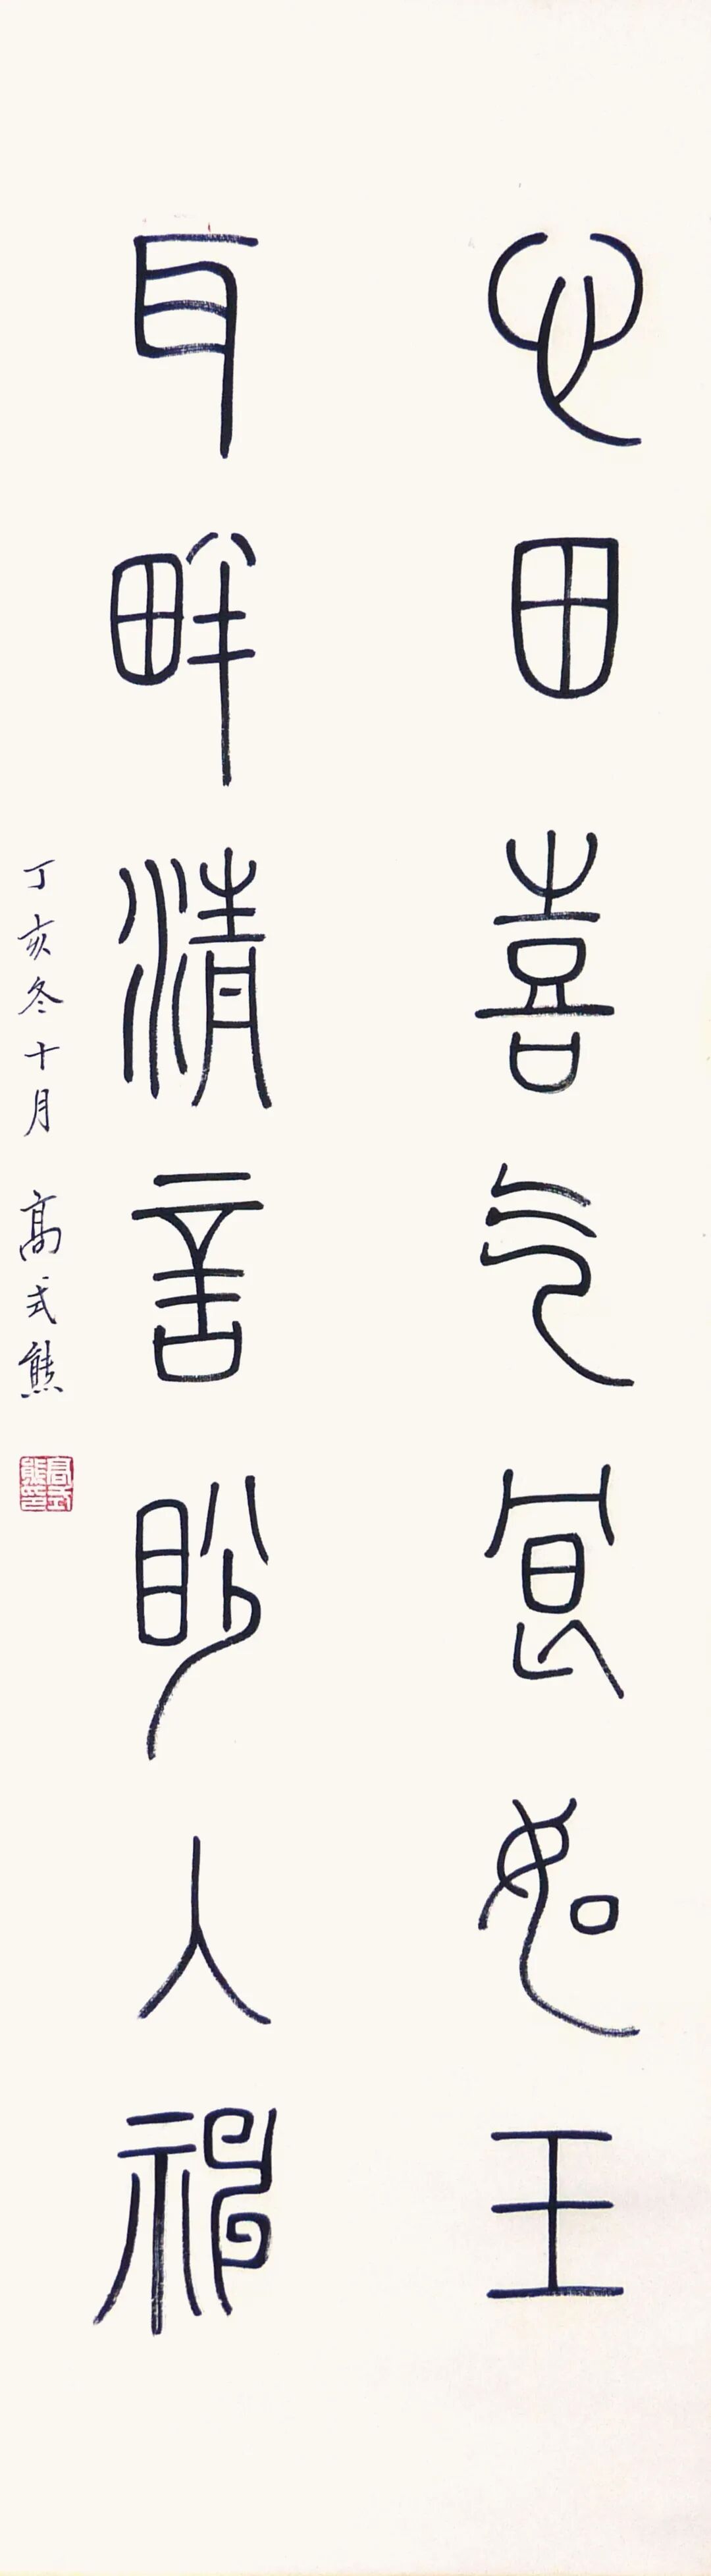 心田喜气良如玉
耳畔清言眇入神
丁亥冬十月 高式熊
高式熊印